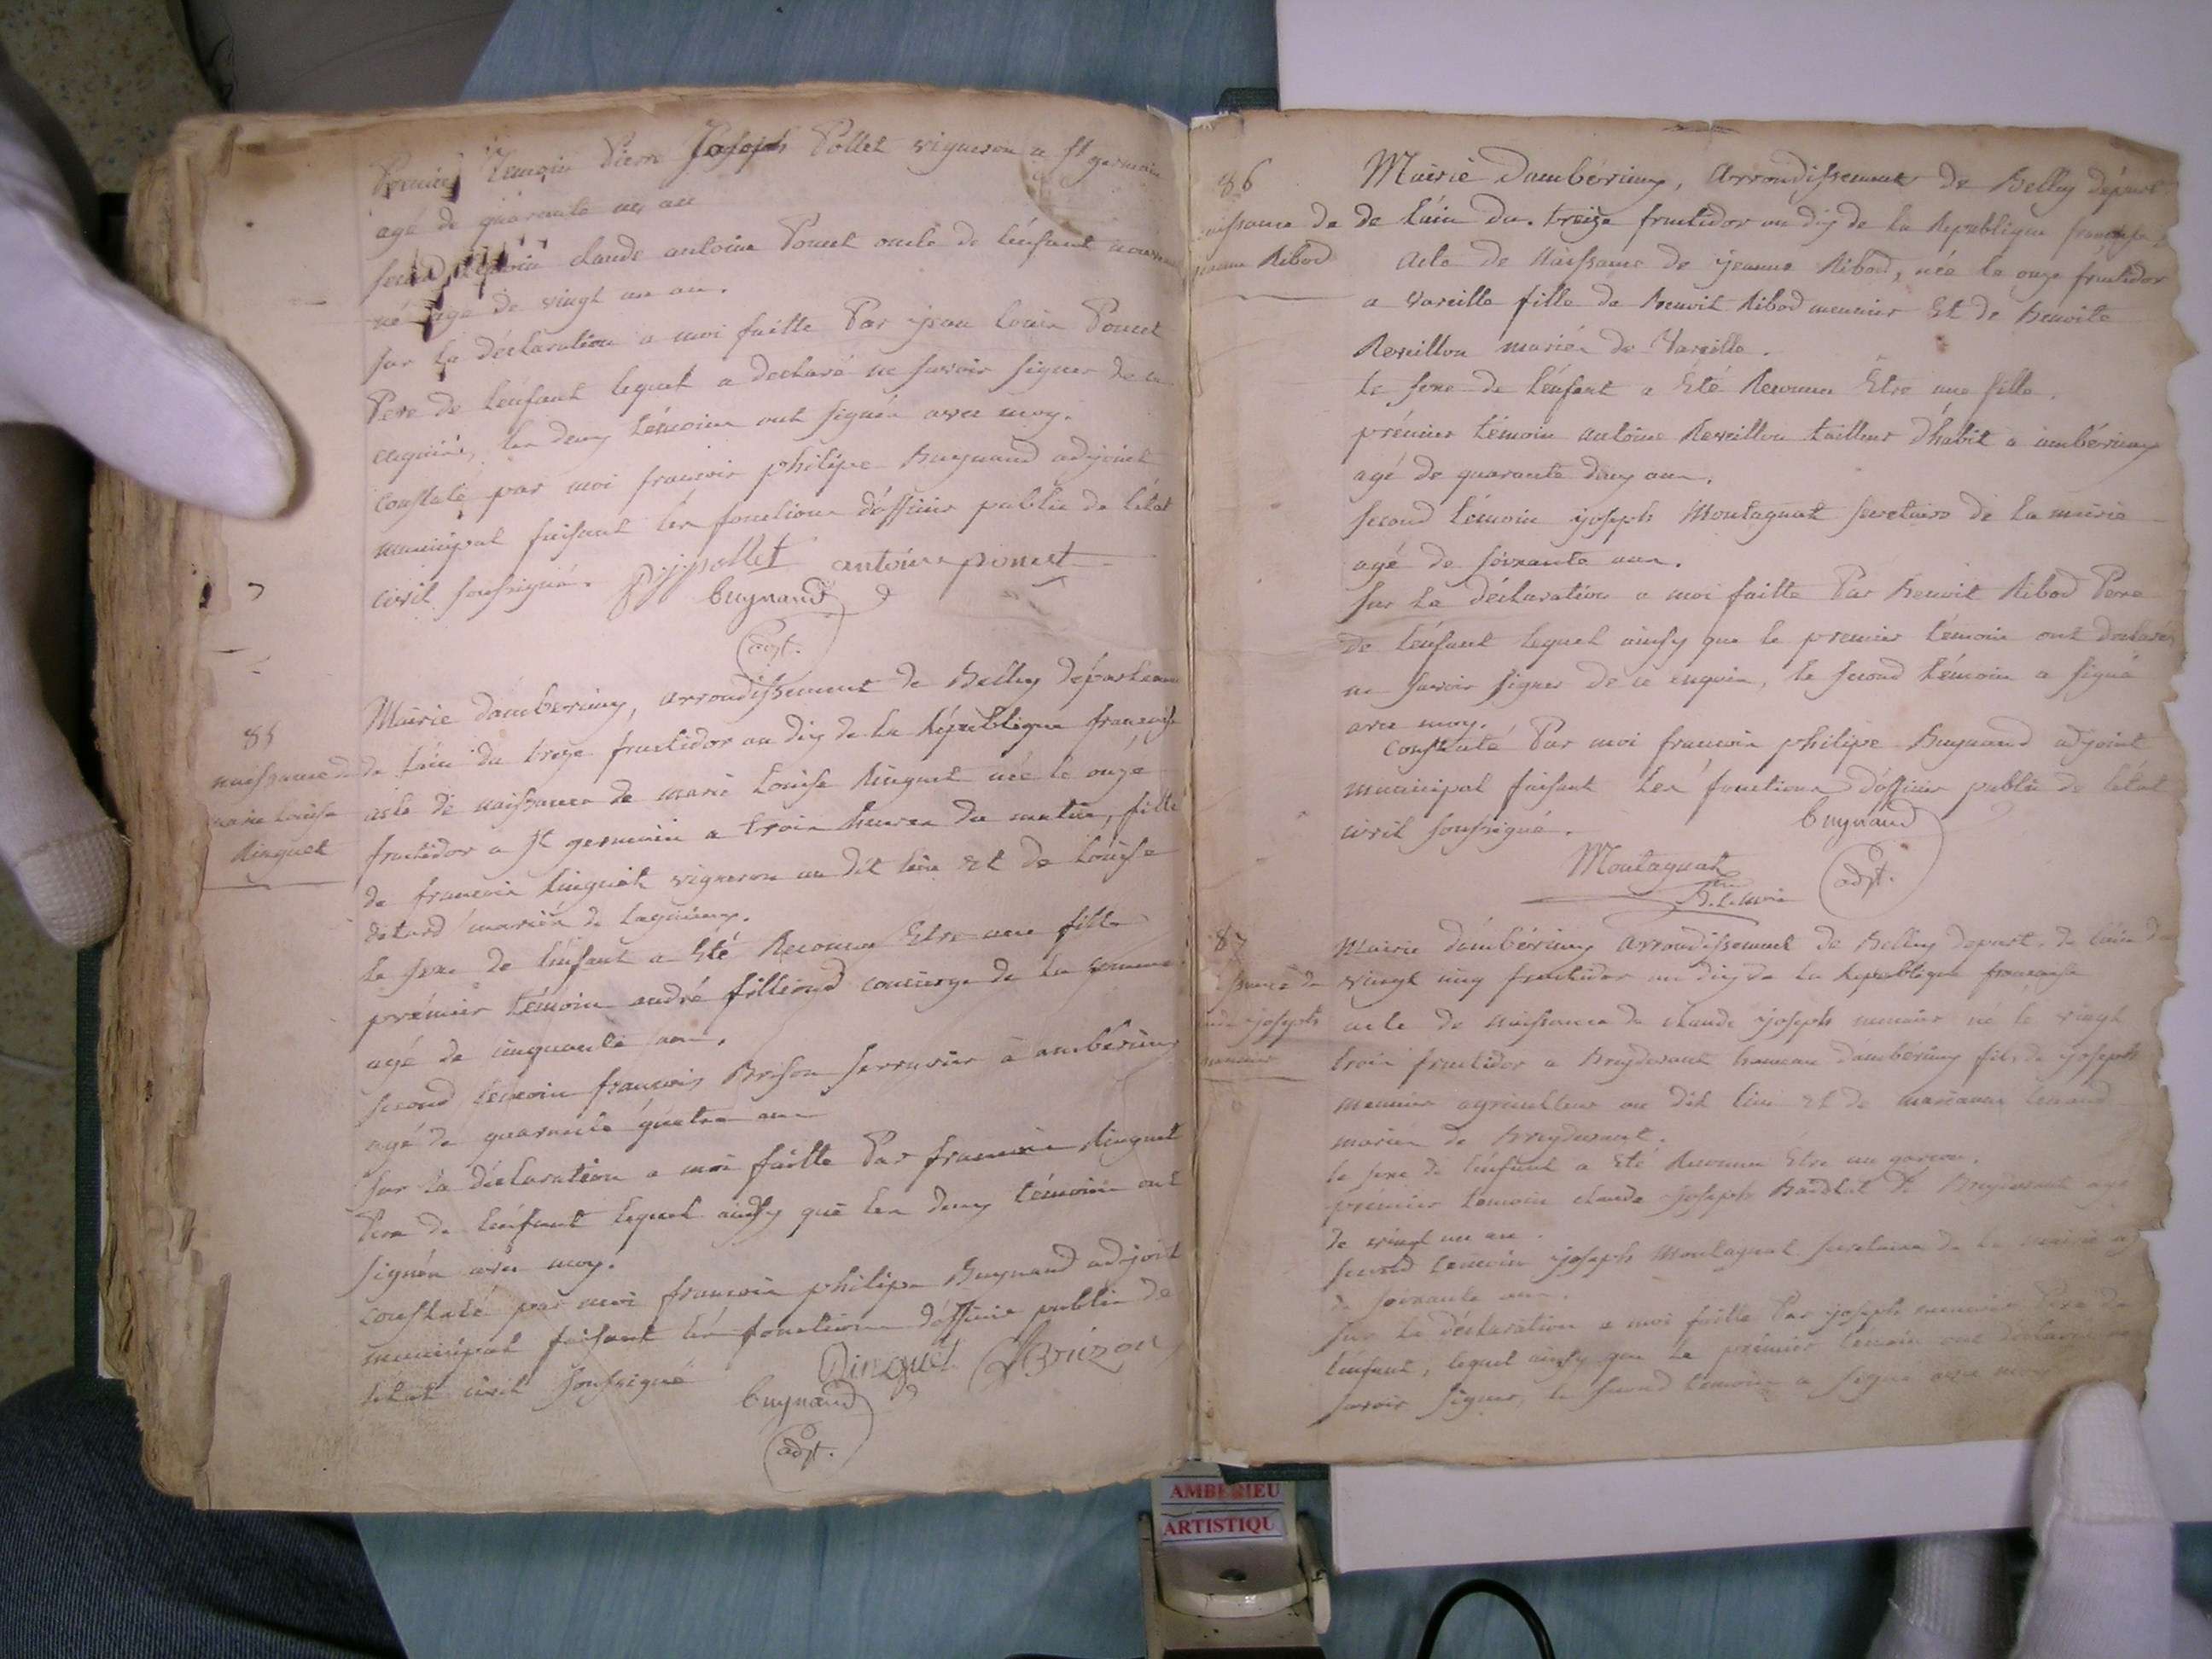 Premier temoin Pierre Joseph Pollet vigneron a St germain
agé de quarante un an
second temoin claude antoine Poncet oncle de lénfant nouveau
né agé de vingt un an.
sur la déclaration a moi faitte Par jean louis Poncet
Pere de lénfant lequel a declaré ne savoir signer de ce
enquis, les deux témoins ont signés avec moy.
constaté par moi francois philipe Buynand adjoint
municipal faisant les fonctions d'officier public de létat
civil soussigné.
pjpollet antoine poncet
buynand
adjt.
85
naissance de
marie louise
Ringuet
Mairie dambérieux, arrondissement de Belley département
de láin du treze fructidor an dix de la République française
acte de naissance de marie louise Ringuet née le onze
fructidor a St germain a trois heures du matin, fille
de francois Ringuet vigneron au dit lieu Et de louise
mariés de
le sexe de lénfant a Eté Reconnu Etre une fille
prémier témoin andré filliond concierge de la
agé de cinquante ans.
second temoin francois Brison serrurier à ambérieux
agé de quarante quatre ans
sur la déclaration a moi faitte Par francois Ringuet
Pere de lénfant lequel ainsy que les deux témoins ont
signés avec moy.
constaté par moi francois philipe Buynand adjoint
municipal faisant les fonctions d'officier public de
létat civil soussigné
Ringuet Brizon
buynand
adjt.
86
naissance de
jeanne Ribod
Mairie dambérieux, Arrondissement de Belley départ.
de láin du. treize fructidor an dix de la Republique francaise,
acte de Naissance de jeanne Ribod, née le onze fructidor
a Vareille fille de Benoit Ribod meunier Et de Benoite
Reveillon mariés de Vareille.
le sexe de lénfant a Eté Reconnu Etre une fille.
prémier témoin antoine Reveillon tailleur d'habit a ambérieux
agé de quarante deux ans.
second témoin joseph Montagnat secretaire de la mairie
agé de soixante ans.
sur la déclaration a moi faitte Par Benoit Ribod Pere
de lénfant lequel ainsy que le premier témoin ont déclarés
ne savoir signer de ce enquis, le second témoin a signé
avec moy.
constaté Par moi francois philipe Buynand adjoint
municipal faisant les fonctions d'officier public de létat
civil soussigné.
buynand
Montagnat
adjt.
87
naissance de
claude joseph
meunier
Mairie dámbérieux Arrondissement de Belley depart. de láin du
vingt cinq fructidor an dix de la Republique francaise
acte de naissance de claude joseph meunier né le vingt
trois fructidor a Breydevant hameau dambérieux fils de joseph
meunier agriculteur au dit lieu Et de marianne
mariés de Breydevant.
le sexe de lénfant a Eté Reconnu Etre un garcon.
prémier témoin claude joseph de Breydevant agé
de vingt un an.
second temoin joseph Montagnat secretaire de la mairie agé
de soixante ans.
sur la déclaration a moi faitte Par joseph meunier Pere de
lénfant, lequel ainsy que le prémier témoin ont déclaré ne
savoir signer, le second temoin a signé avec moy
AMBERIEU
ARTISTIQU